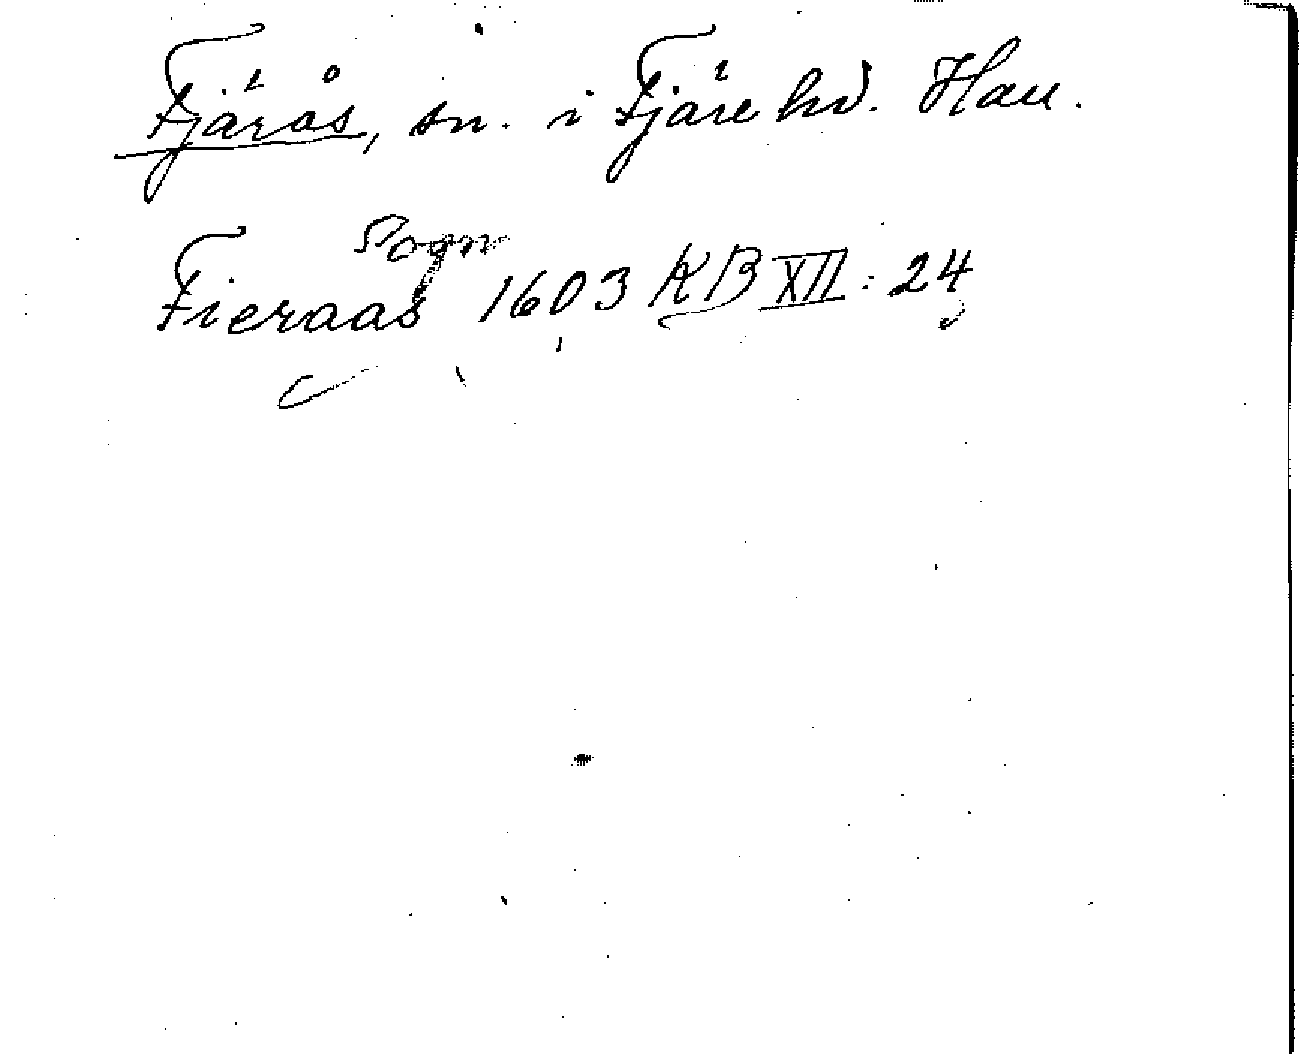 Fjärås, sn. i Fjäre hd. Hall.
Sogn
Fieraas 1603 KB XII: 24